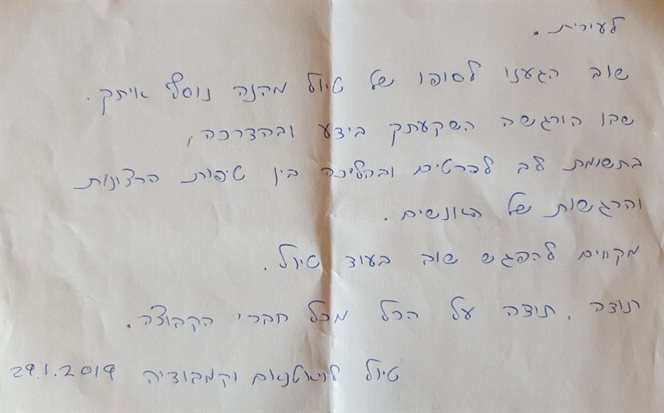 לעירית.
שוב הגענו לסופו של טיול מהנה נוסף איתך.
שבו הורגשה השקעתך בידע ובהדרכה,
בתשומת לב לפרטים ובהליכה בין טיפות הרצינות
והרגשות של האנשים.
מקווים להפגש שוב בעוד טיול.
תודה, תודה על הכל מכל חברי הקבוצה.
טיול לוויאטנאם וקמבודיה 29.1.2019